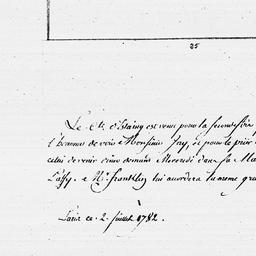 25
Le Cte. d'Estaing est venu pour la seconde fois
l'honneur de voir Monsieur Jay, et pour le prier
celui de venir diner demain Mercredi dans sa Ma
Passy. Mr. franklin lui accordera la meme gra
à
Paris ce 2. juillet 1782.